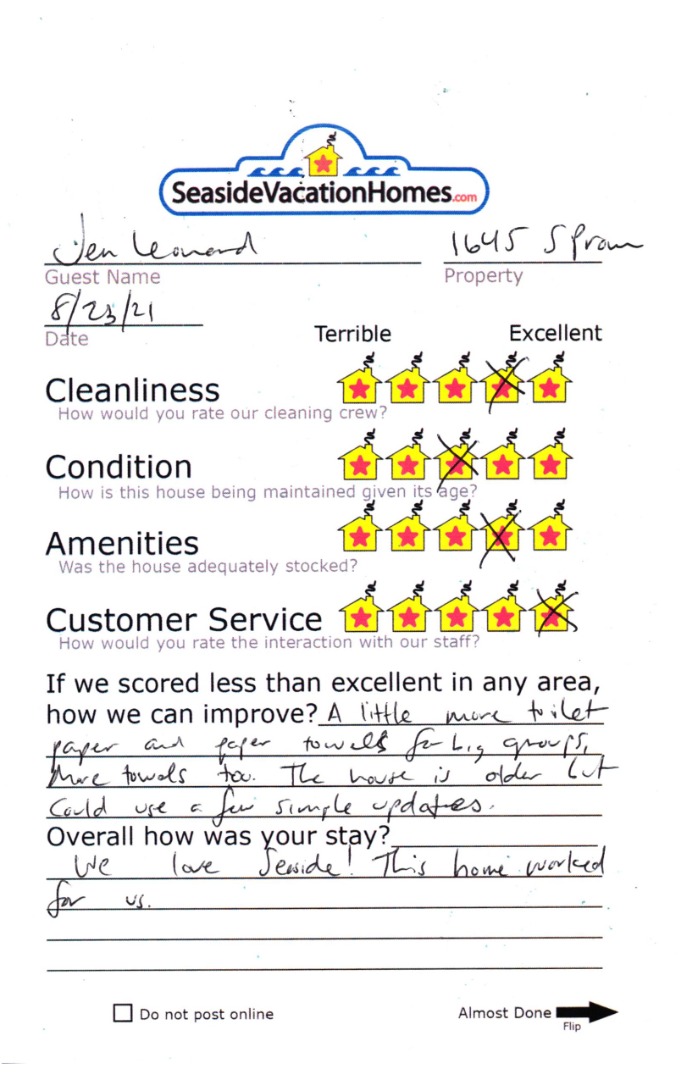 SeasideVacationHomes.com
Jen Leonard 1645 S Prom
Guest Name Property
8/23/21
Date
Terrible Excellent
Cleanliness
How would you rate our cleaning crew?
Condition
How is this house being maintained given its age?
Amenities
Was the house adequately stocked?
Customer Service
How would you rate the interaction with our staff?
If we scored less than excellent in any area,
how we can improve? A little more toilet
paper and paper towels for big groups,
More towels too. The house is older but
Could use a few simple updates.
Overall how was your stay?
We love Seaside! This home worked
for us.
Do not post online Almost Done
Flip